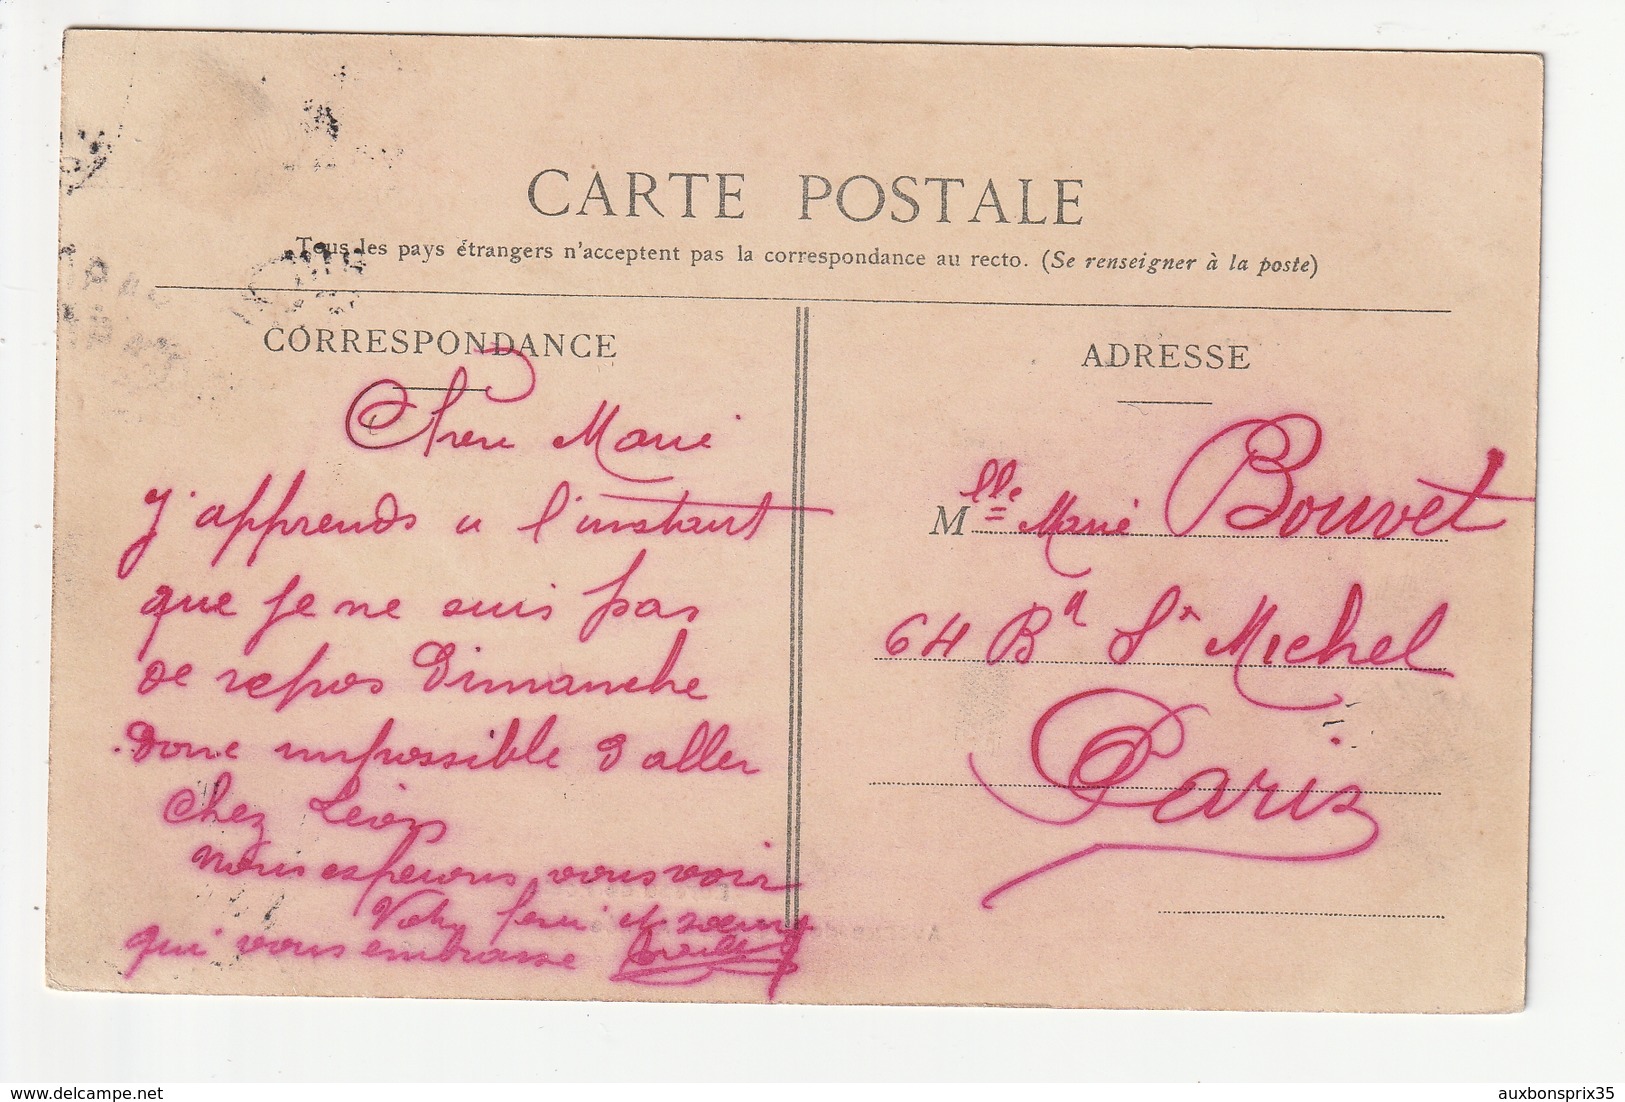 CARTE POSTALE
Tous les pays étrangers n'acceptent pas la correspondance au recto. (Se renseigner à la poste)
CORRESPONDANCE
Chere Marie
J'apprends a l'instant
que je ne suis pas
de repos Dimanche
Donc impossible d'aller
chez Léon
nous esperons vous voir
et soeur
qui vous embrasse
ADRESSE
Mlle Marie Bouvet
64 Bd St Michel
Paris
delcampe.net
auxbonsprix35